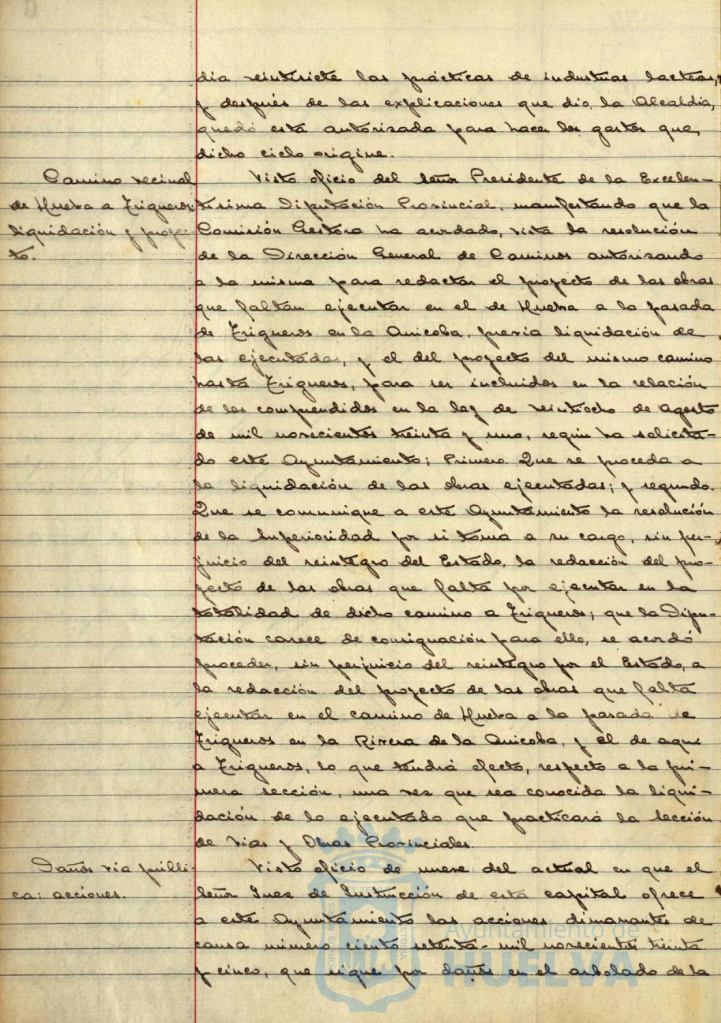 día veintisiete las prácticas de industrias lacteas,
y después de las explicaciones que dio la Alcaldia,
quedó esta autorizada para hacer los gastos que
dicho ciclo origine.
Camino vecinal
de Huelva a Trigueros:
liquidación y proyec-
to.
Visto oficio del Señor Presidente de la Excelen-
tisima Diputación Provincial, manifestando que la
Comisión Gestora ha acordado, vista la resolución
de la Dirección General de Caminos autorizando
a la misma para redactar el proyecto de las obras
que faltan ejecutar en el de Huelva a la pasada
de Trigueros en la Anicoba, previa liquidación de
las ejecutadas, y el del proyecto del mismo camino
hasta Trigueros, para ser incluidos en la relación
de los comprendidos en la ley de veintiocho de agosto
de mil novecientos treinta y uno, según ha solicita-
do este Ayuntamiento; Primero Que se proceda a
la liquidación de las obras ejecutadas; y segundo.
Que se comunique a este Ayuntamiento la resolución
de la Superioridad por si toma a su cargo, sin per-
juicio del reintegro del Estado, la redacción del pro-
yecto de las obras que falta por ejecutar en la
totalidad de dicho camino a Trigueros; que la Dipu-
tación carece de consignación para ello, se acordó
proceder, sin perjuicio del reintegro por el Estado, a
la redacción del proyecto de las obras que falta
ejecutar en el camino de Huelva a la pasada de
Trigueros en la Rivera de la Anicoba, y el de aqui
a Trigueros, lo que tendrá efecto, respecto a la pri-
mera sección, una vez que sea conocida la liqui-
dación de lo ejecutado que practicará la Sección
de Vias y Obras Provinciales.
Daños via públi-
ca: acciones.
Visto oficio de nueve del actual en que el
Señor Juez de Instrucción de esta capital ofrece
a este Ayuntamiento las acciones dimanantes de
causa número ciento setenta-mil novecientos treinta
y cinco, que sigue por daños en el arbolado de la
Ayuntamiento de
HUELVA